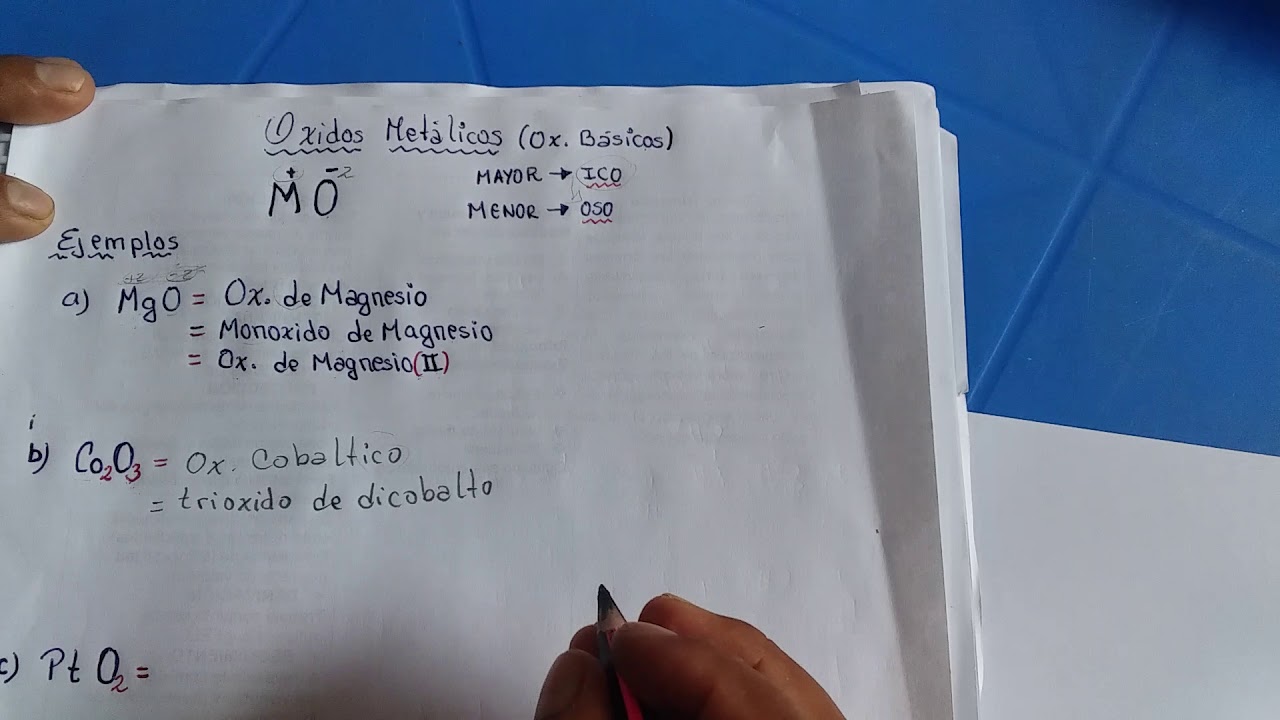 Oxidos Metálicos (Ox. Básicos)
+ -2
MO
MAYOR → ICO
MENOR → OSO
Ejemplos
+2 -2
a) MgO = Ox. de Magnesio
= Monoxido de Magnesio
= Ox. de Magnesio (II)
i
b) Co2O3 = Ox. Cobaltico
= trioxido de dicobalto
c) Pt O2 =